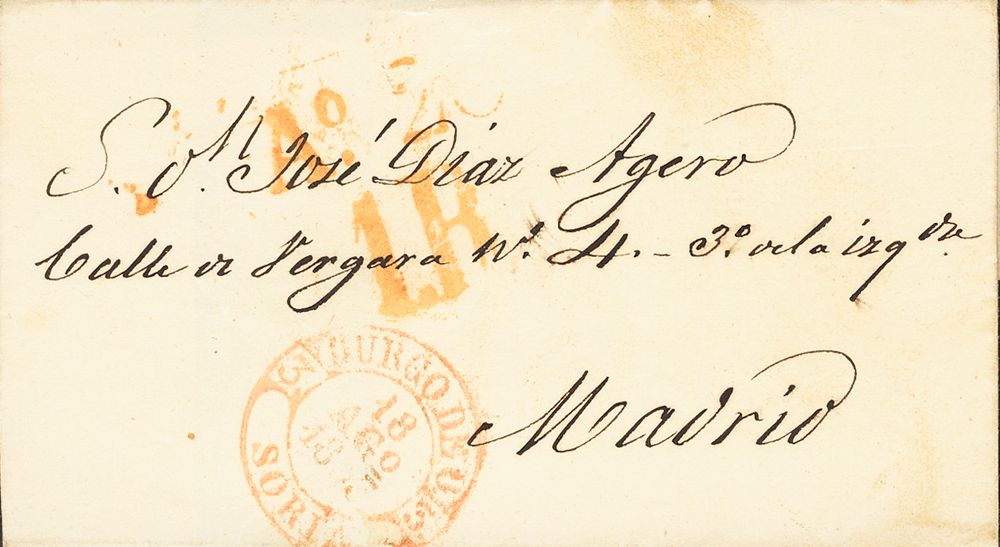 S. Dn. José Díaz Agero
Calle de Vergara Nº. 4. - 3º dela izqda.
Madrid
1R
BURGO DE
SORI
18
AGO
18